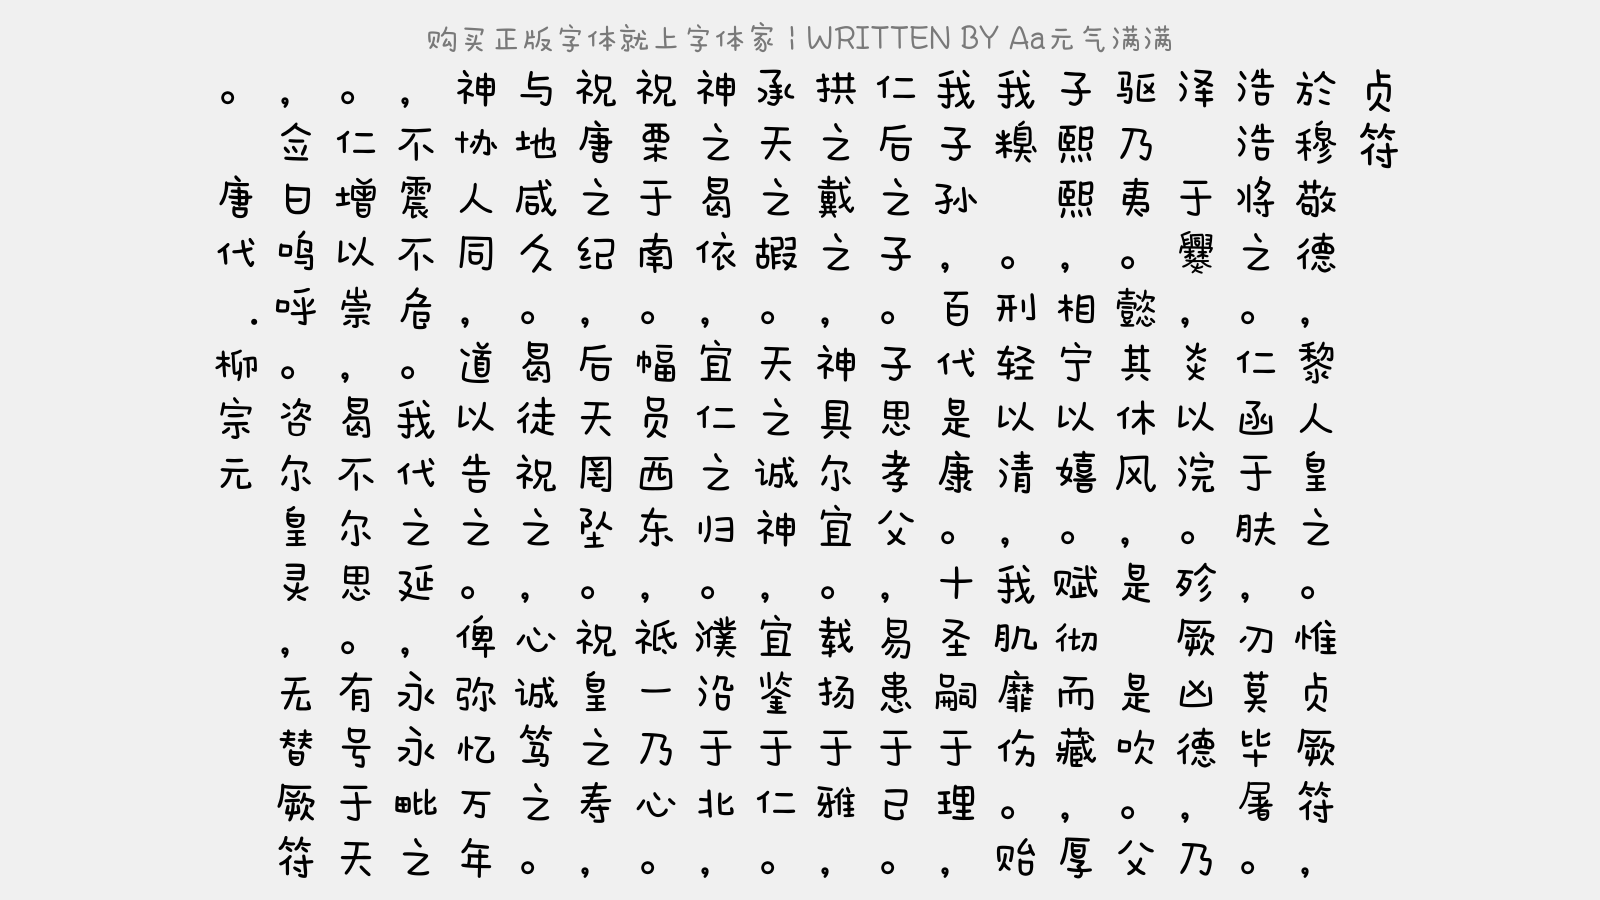 购买正版字体就上字体家 | WRITTEN BY Aa元气满满
贞符
於穆敬德，黎人皇之。惟贞厥符，
浩浩将之。仁函于肤，刃莫毕屠。
泽 于爨，炎以浣。殄厥凶德，乃
驱乃夷。懿其休风，是 是吹。父
子熙熙，相宁以嬉。赋彻而藏，厚
我糗 。刑轻以清，我肌靡伤。贻
我子孙，百代是康。十圣嗣于理，
仁后之子。子思孝父，易患于已。
拱之戴之，神具尔宜。载扬于雅，
承天之嘏。天之诚神，宜鉴于仁。
神之曷依，宜仁之归。濮沿于北，
祝栗于南。幅员西东，祗一乃心。
祝唐之纪，后天罔坠。祝皇之寿，
与地咸久。曷徒祝之，心诚笃之。
神协人同，道以告之。俾弥忆万年
，不震不危。我代之延，永永毗之
。仁增以崇，曷不尔思。有号于天
，佥曰呜呼。咨尔皇灵，无替厥符
。 唐代．柳宗元